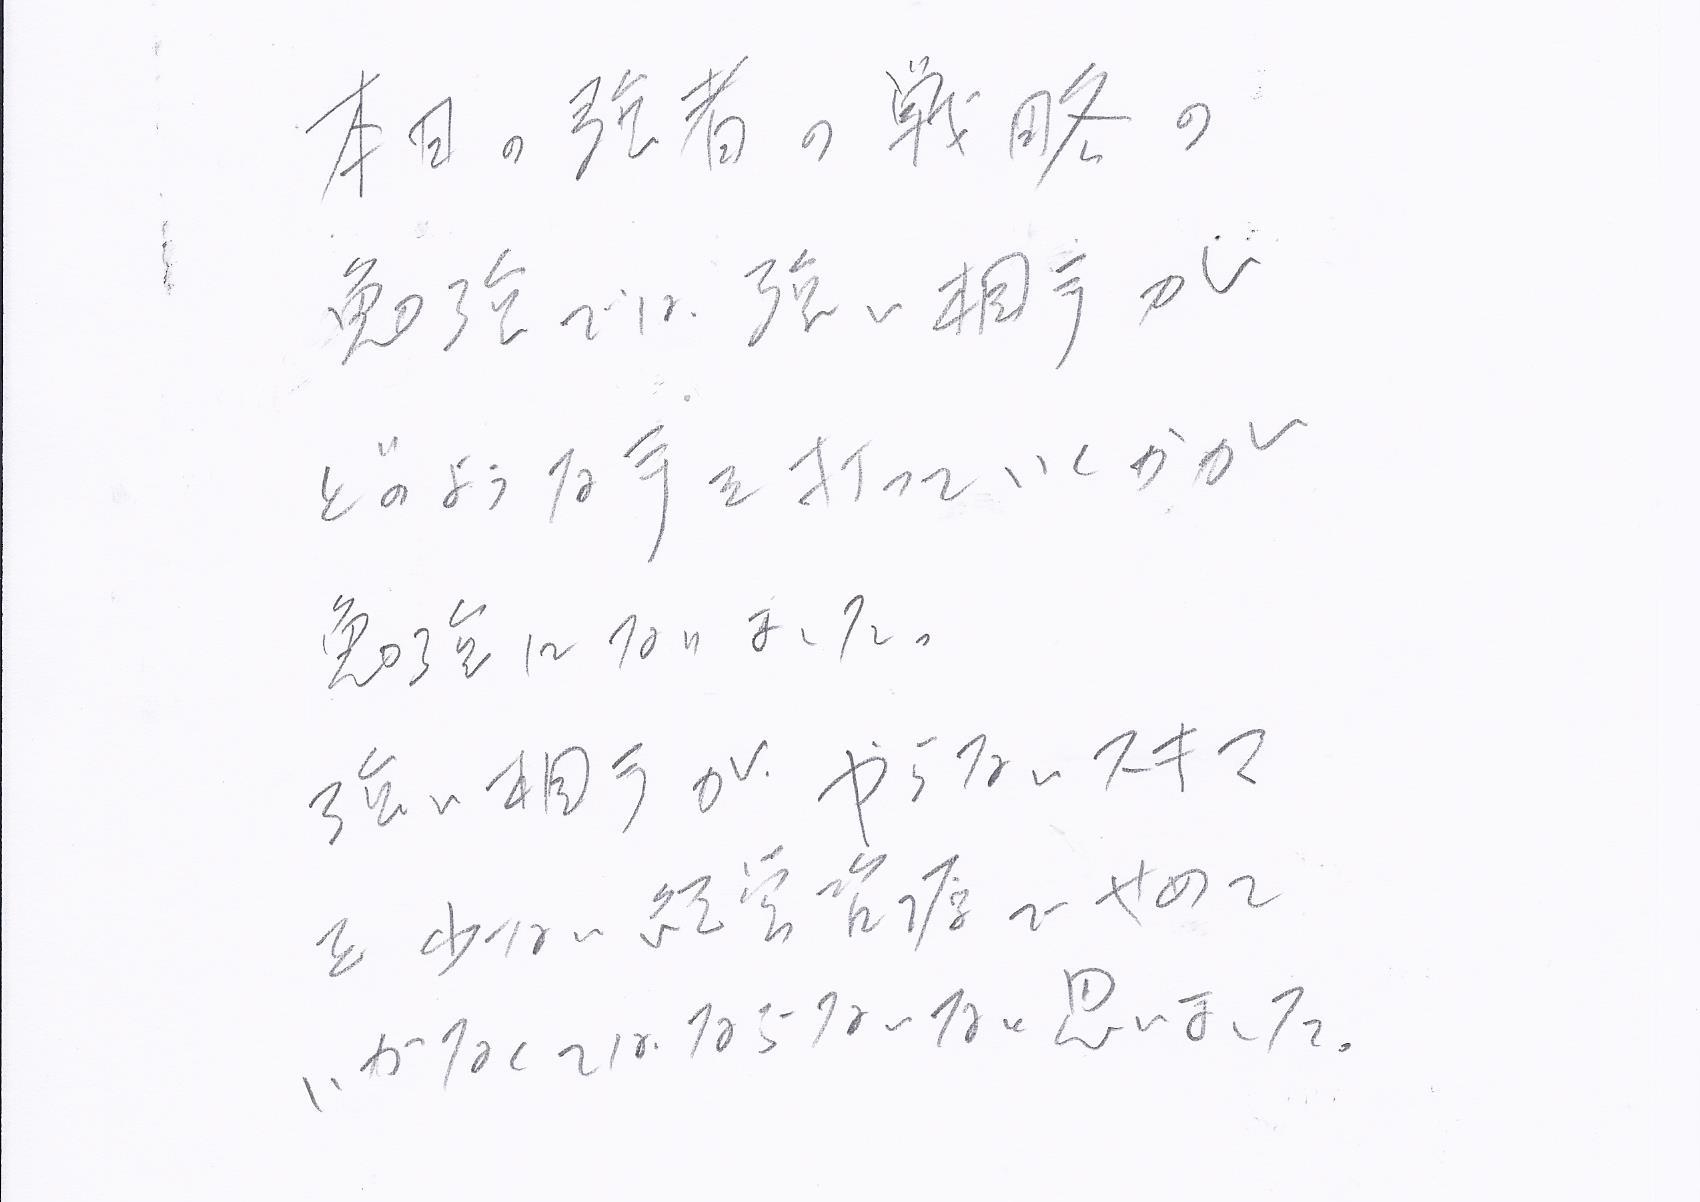 本日の強者の戦略の
勉強では、強い相手が
どのような手を打っていくかが
勉強になりました。
強い相手が、やらないスキマ
を少ない経営資源でせめて
いかなくてはならないなと思いました。